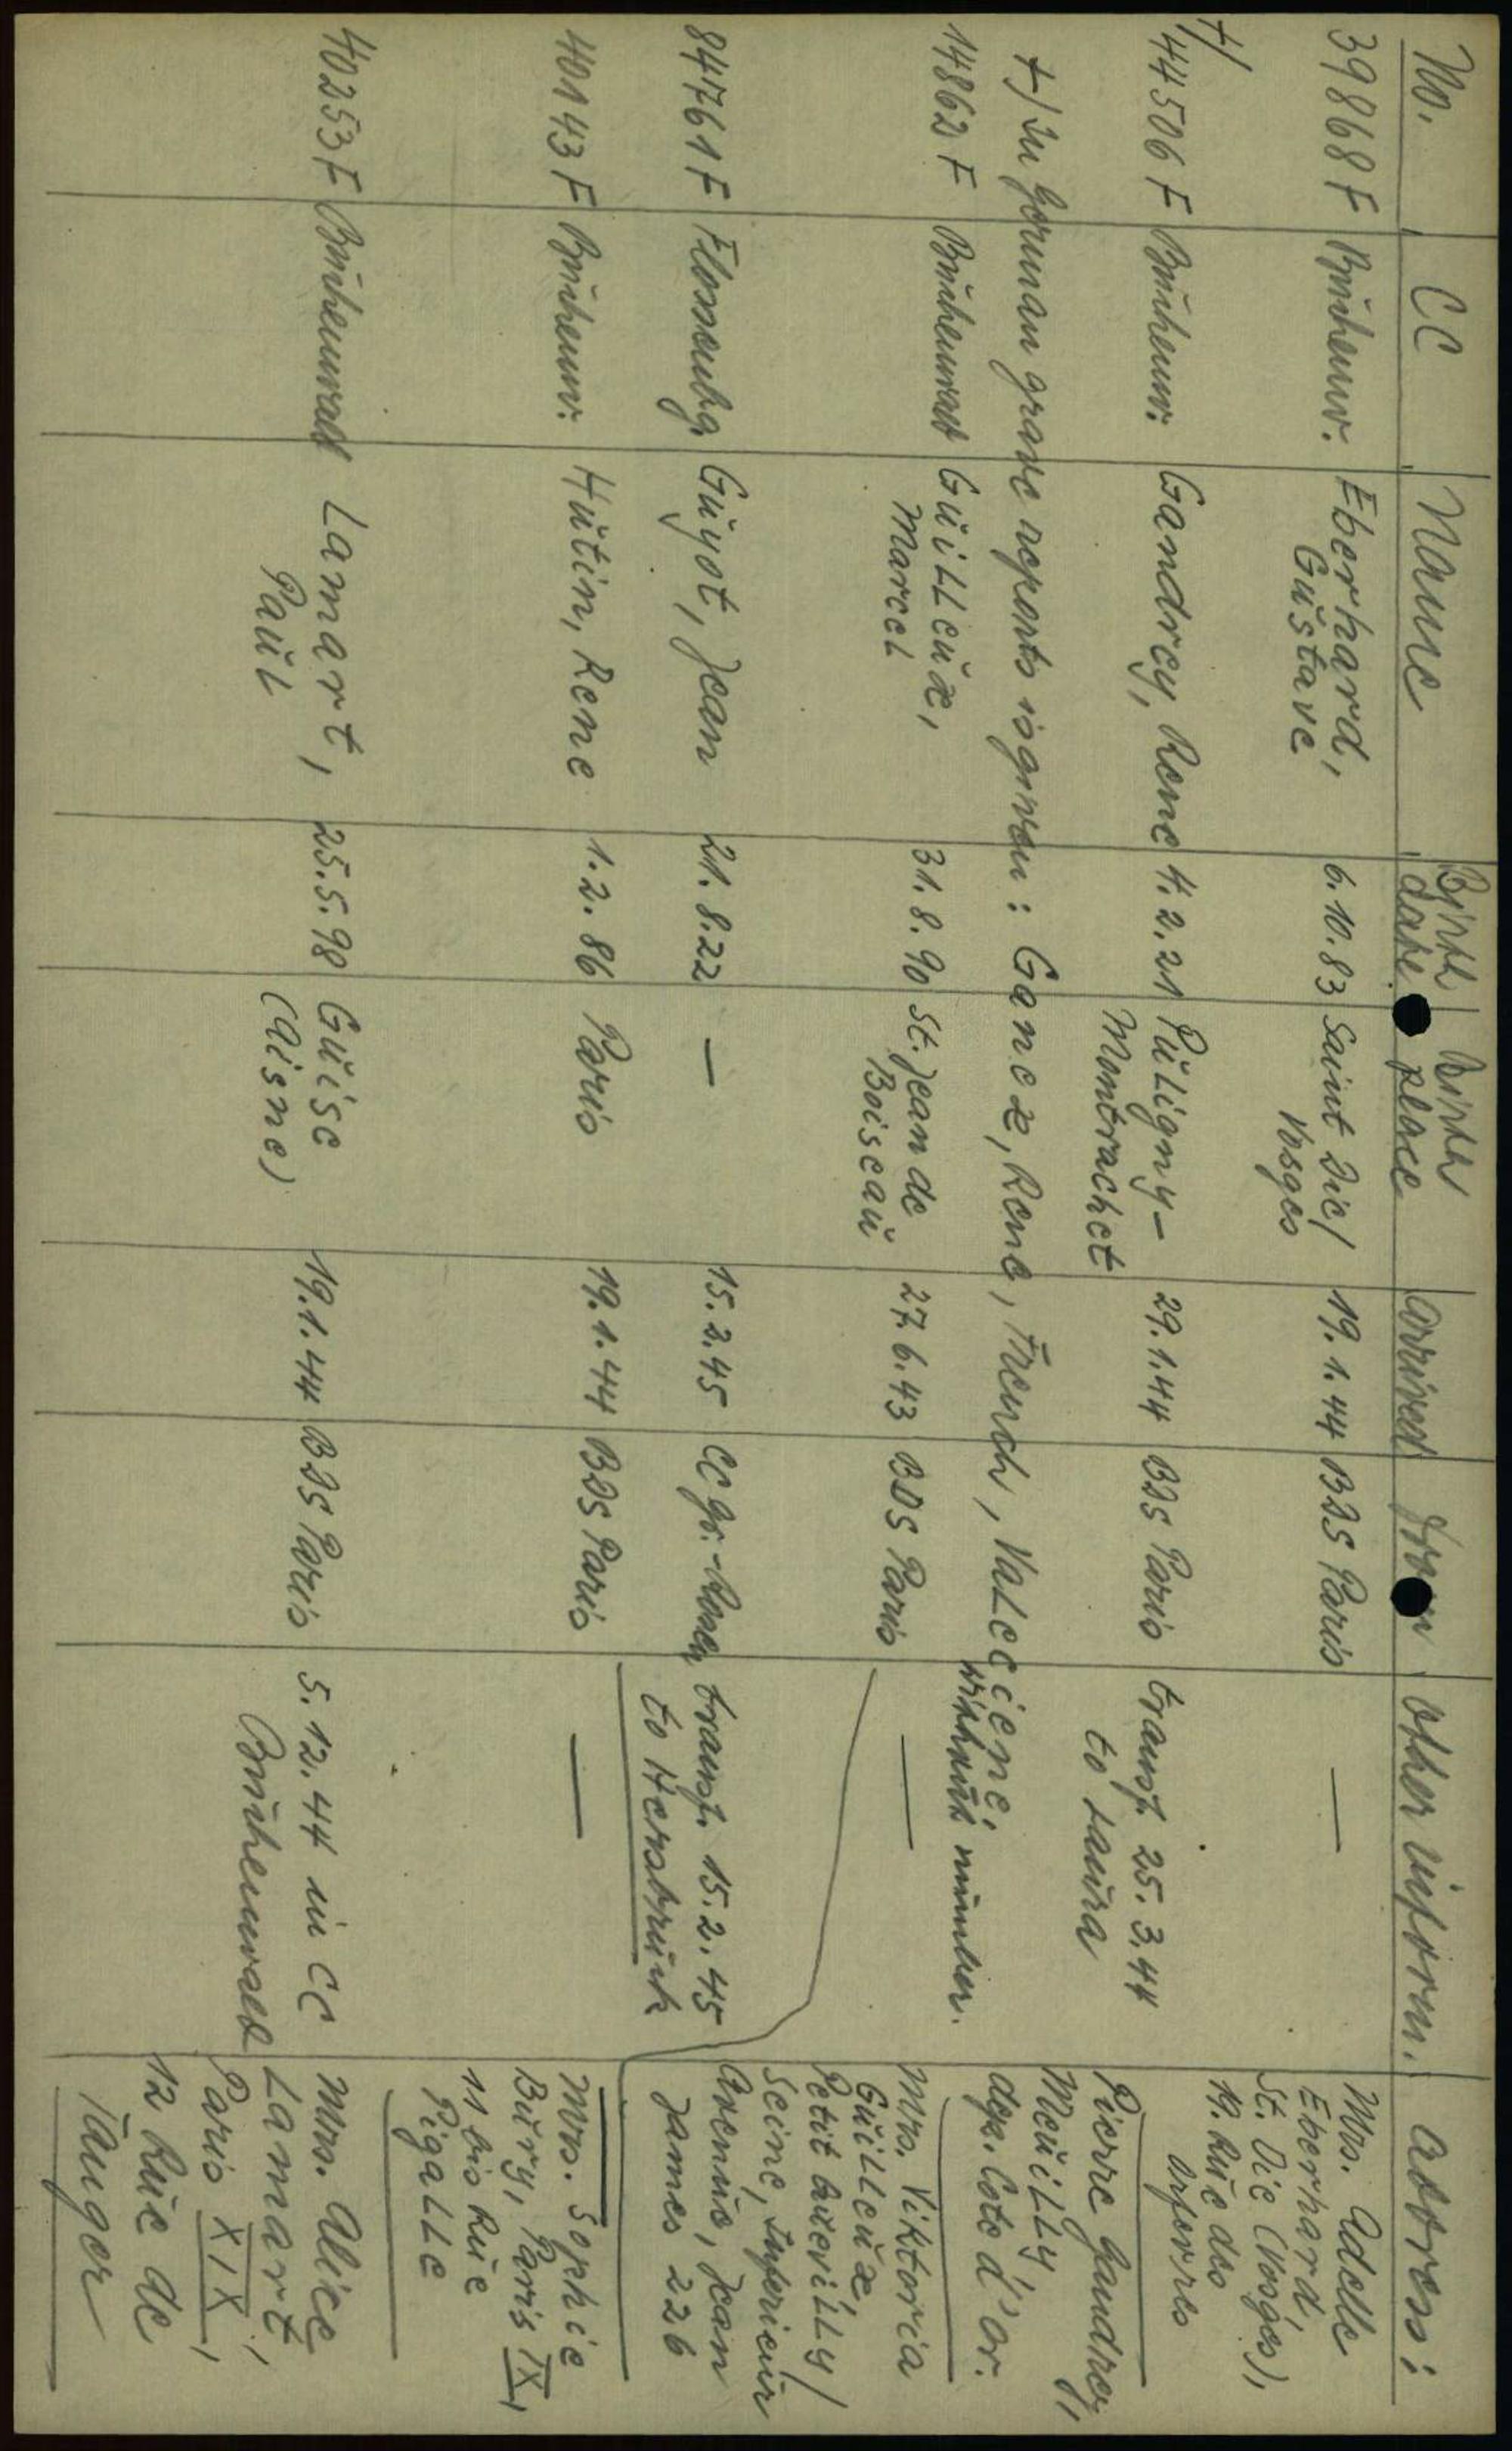 No. CC Name Birth date Birth place arrived from other inform. address:
39868 F Buchenw. Eberhard, Gustave 6.10.83 Saint Die/ Vosges 19.1.44 BDS Paris — Mrs. Adelle
Eberhard,
St. Die (Vosges),
19. Rue des
Orfevres
+/
44506 F Buchenw. Gandrey, Rene 4.2.21 Puligny- Montrachet 29.1.44 BDS Paris transf. 25.3.44 to Laura Pierre Gandrey,
Meuilly,
dep. Cote d'or.
+/ In German grave reports is given: Gancx, Rene, French, Valeciene,
without number.
14862 F Buchenwald Guilleux, Marcel 31.8.90 St. Jean de Boiseau 27.6.43 BDS Paris — Mrs. Viktoria
Guilleux
Petit Quevilly/
Seine, Inferieur
Avenue, Jean
James 226
84761 F Flossenbg. Guyot, Jean 21.8.22 — 15.2.45 CC Gr.-Rosen transf. 15.2.45 to Hersbruck
40143 F Buchenw. Hutin, Rene 1.2.86 Paris 19.1.44 BDS Paris — Mrs. Sophie
Bury, Paris IX,
11 bis Rue
Pigalle
40253 F Buchenwald Lamart, Paul 25.5.98 Guise (Aisne) 19.1.44 BDS Paris 5.12.44 in CC Buchenwald Mrs. Alice
Lamart,
Paris XIX,
12 Rue de
Tanger